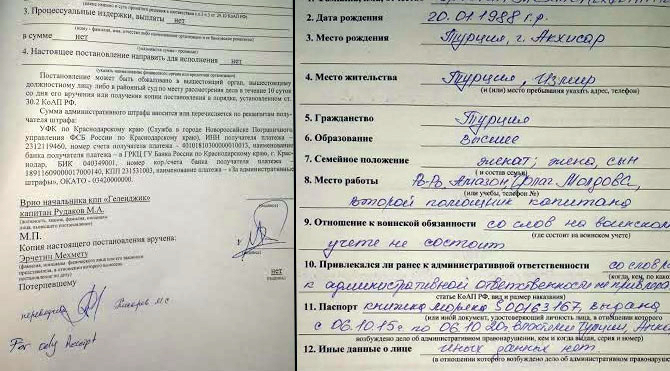 3. Процессуальные издержки, выплаты нет
в сумме нет
4. Настоящее постановление направить для исполнения нет
Постановление может быть обжаловано в вышестоящий орган, вышестоящему
должностному лицу либо в районный суд по месту рассмотрения дела в течение 10 суток
со дня его вручения или получения копии постановления в порядке, установленном ст.
30.2 КоАП РФ.
Сумма административного штрафа вносится или перечисляется по реквизитам полу-
чателя штрафа:
УФК по Краснодарскому краю (Служба в городе Новороссийске Пограничного
управления ФСБ России по Краснодарскому краю), ИНН получателя платежа –
2312119460, номер счета получателя платежа – наименование
банка получателя платежа – в ГРКЦ ГУ Банка России по Краснодарскому краю, г. Крас-
нодар, БИК – 040349001, номер кор/счета банка получателя платежа
КПП 231553003, наименование платежа – «За административные
штрафы», ОКАТО - 0342000000.
Врио начальника кпп «Геленджик»
капитан Рудаков М.А.
М.П.
Копия настоящего постановления вручена:
Эрчетин Мехмету
нет
Потерпевшему
переводчик М С
For only Receipt
2. Дата рождения 20.01.1988 г.р.
3. Место рождения Турция, г. Акхисар
4. Место жительства Турция, Измир
(и (или) место пребывания указать адрес, телефон)
5. Гражданство Турция
6. Образование Высшее
7. Семейное положение женат; жена, сын
( и состав семьи)
8. Место работы Амазон, Флаг Молдова,
(или учебы, телефон №)
второй помощник капитана
9. Отношение к воинской обязанности со слов на воинском
(где состоит на воинском учете)
учете не состоит
10. Привлекался ли ранее к административной ответственности со слов
(когда, кем, по какой
к административной ответственности не привлекался
статье КоАП РФ, вид и размер наказания)
11. Паспорт книжка моряка S00163167, выдана
(или иной документ, удостоверяющий личность лица, в отношении которого
с 06.10.15г. по 06.10.20г. властями Турции,
возбуждено дело об административном правонарушении, кем и когда выдан, серия и номер)
12. Иные данные о лице иных данных нет
(в отношении которого возбуждено дело об административном правонарушении)